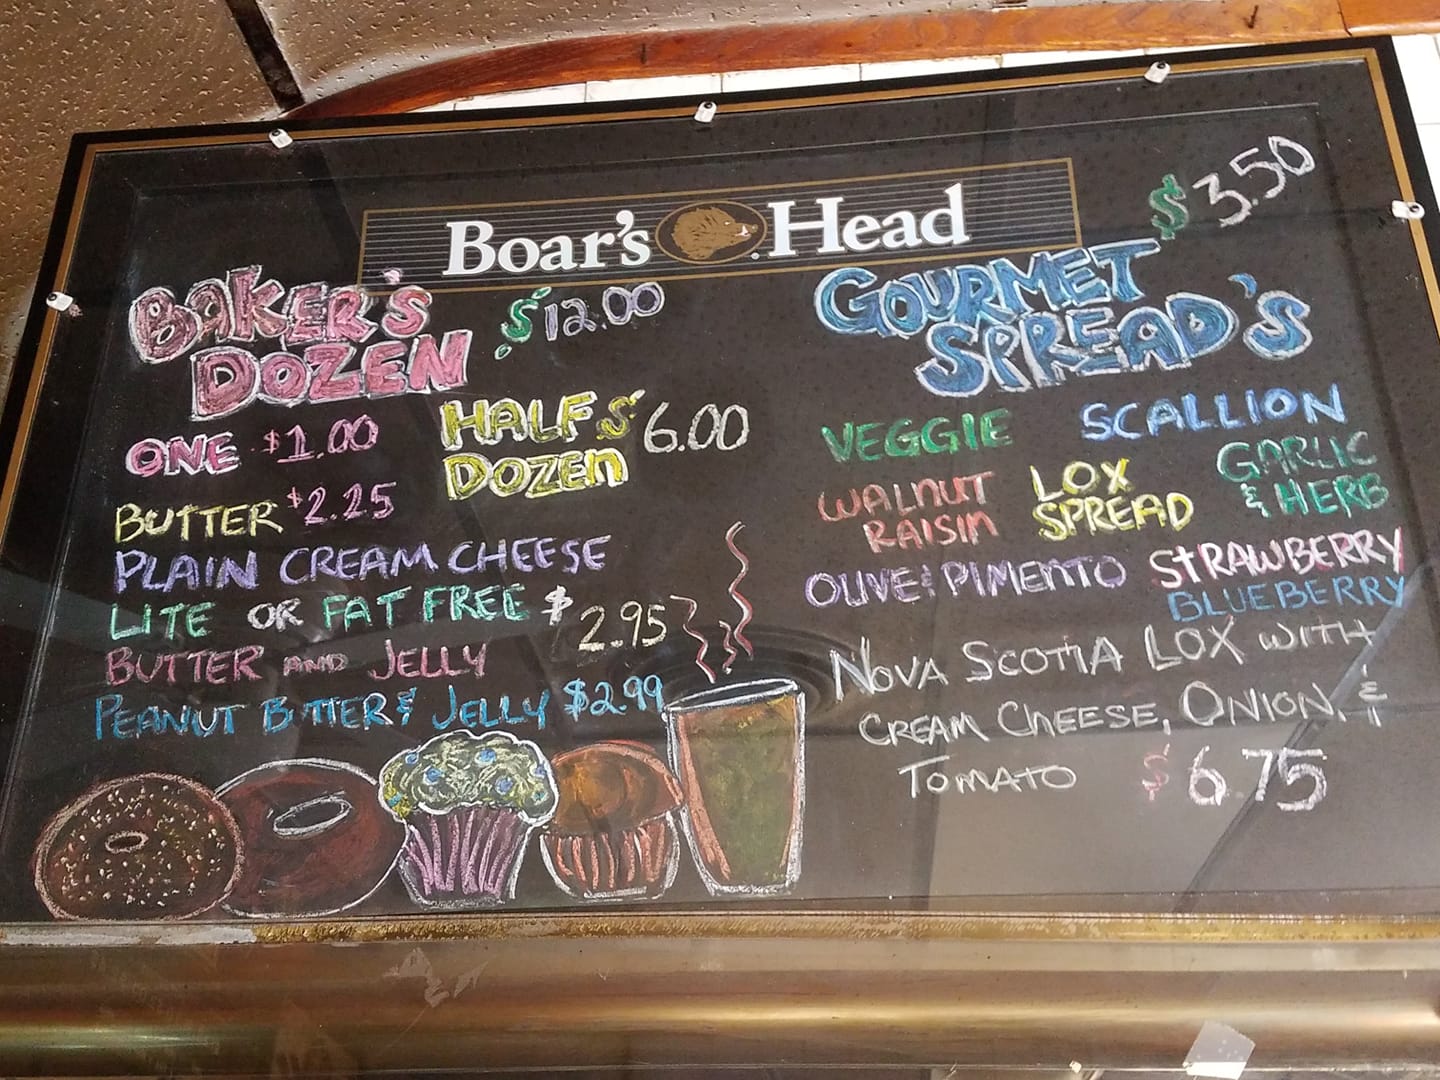 Boar's Head
BAKER'S
DOZEN
$12.00
ONE $1.00
HALF
DOZEN
$6.00
BUTTER $2.25
PLAIN CREAM CHEESE
LITE OR FAT FREE $2.95
BUTTER AND JELLY
PEANUT BUTTER & JELLY $2.99
$3.50
GOURMET
SPREAD'S
VEGGIE
SCALLION
WALNUT
RAISIN
LOX
SPREAD
GARLIC
& HERB
OLIVE & PIMENTO
STRAWBERRY
BLUEBERRY
NOVA SCOTIA LOX WITH
CREAM CHEESE, ONION, &
TOMATO $6.75